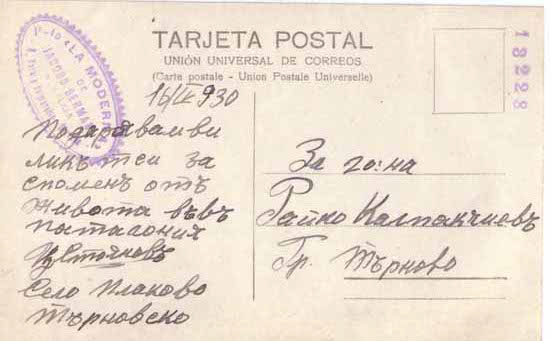 TARJETA POSTAL
UNIÓN UNIVERSAL DE CORREOS
(Carte postale - Union Postale Universelle)
LA MODERNA
DE
JACOBO BERMAN
13228
930
Подарявамви
ликътси за
споменъ отъ
живота въвъ
Патагония
Стояновъ
Село Плаково
Търновско
За го:на
Райко Калпакчиевъ
Гр. Търново